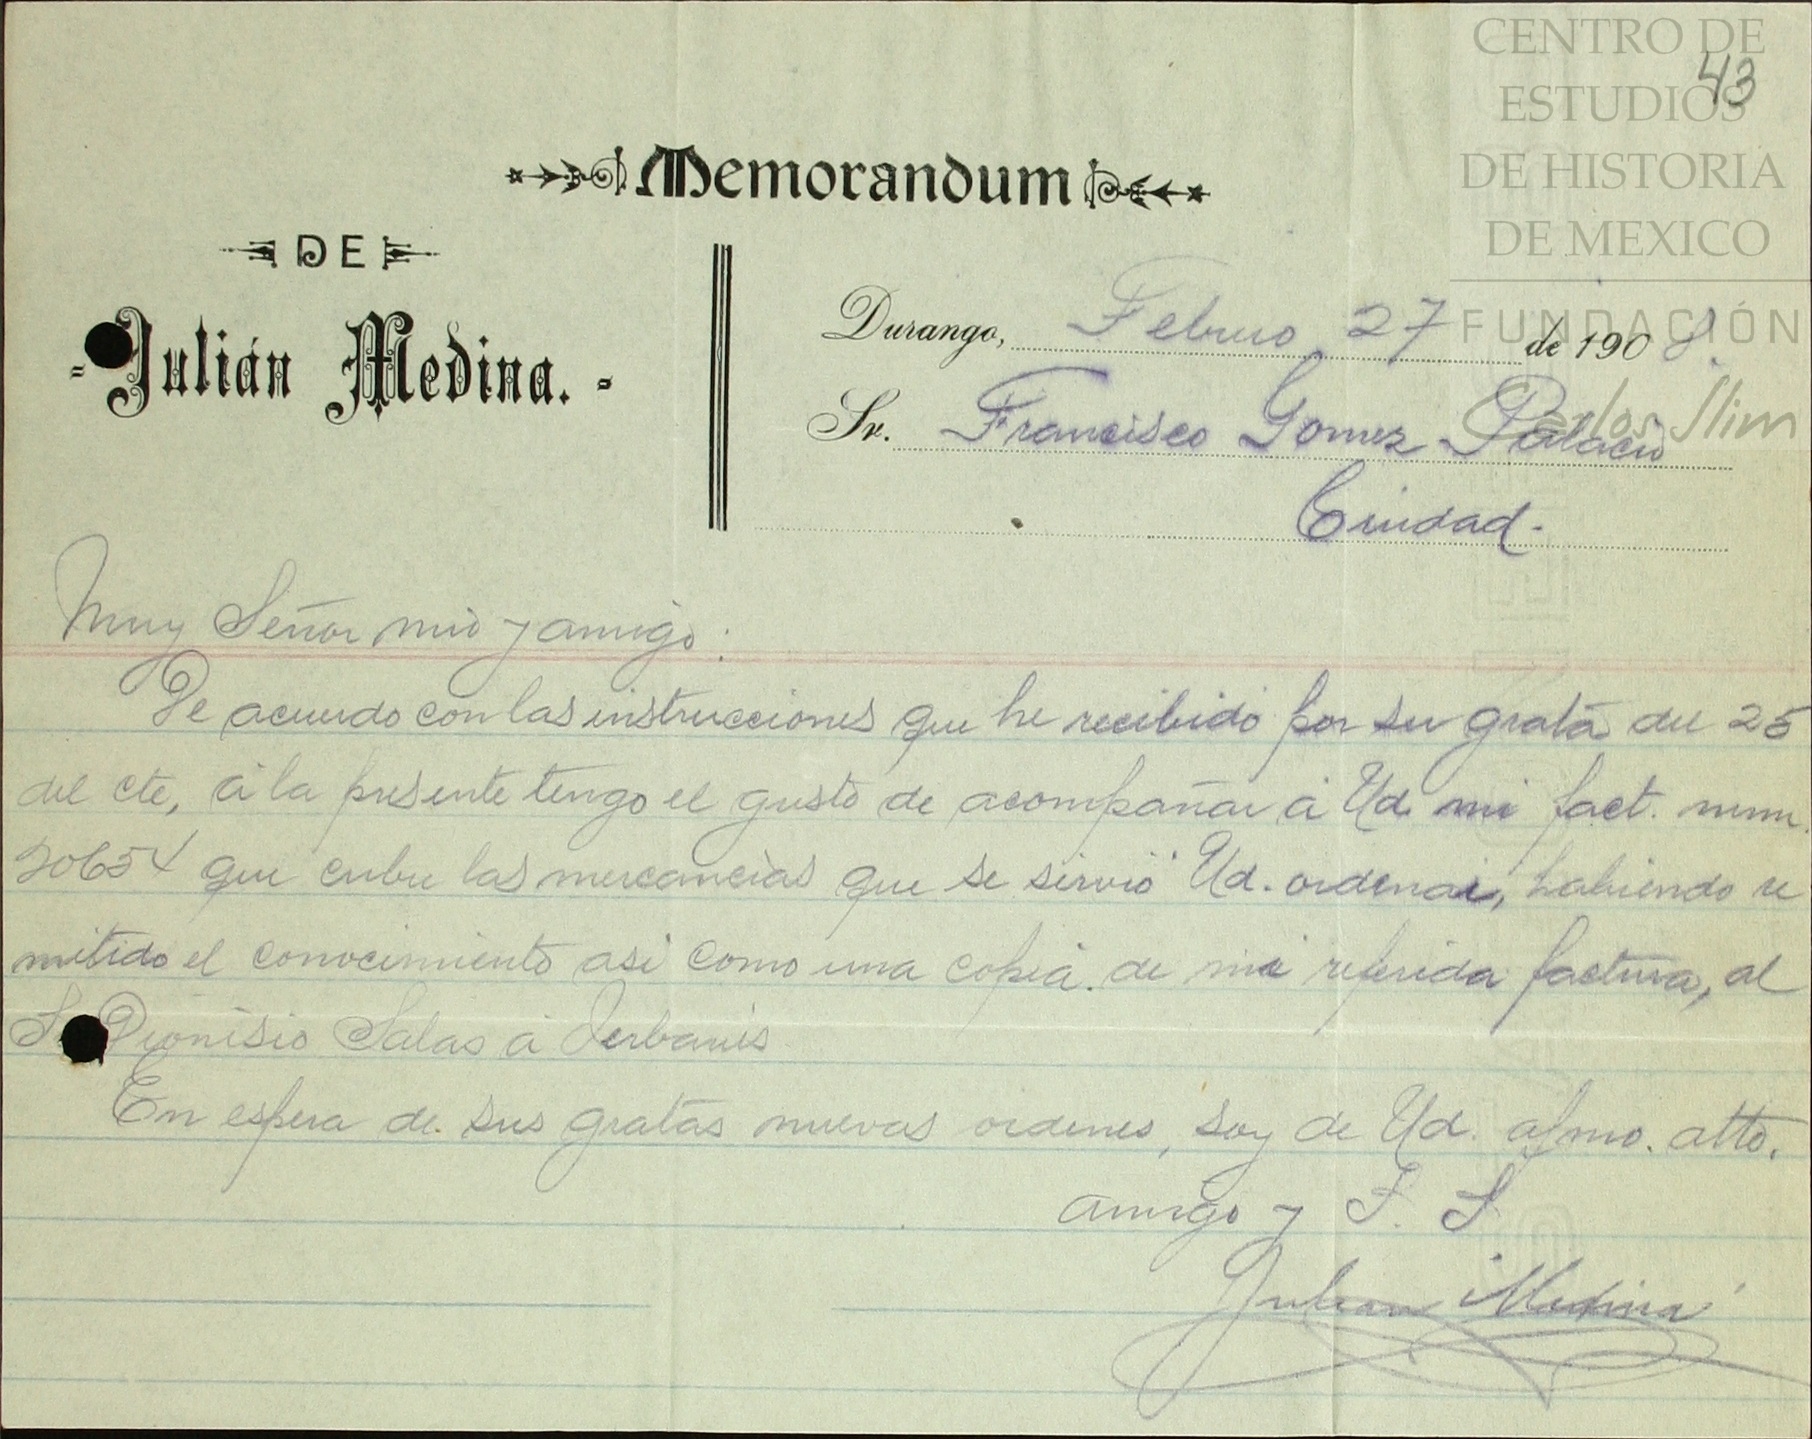 CENTRO DE
ESTUDIOS
DE HISTORIA
DE MEXICO
FUNDACIÓN
Carlos Slim
43
Memorandum
DE
Julián Medina.
Durango, Febrero 27 de 1908.
Sr. Francisco Gomez Palacio
Ciudad.
Muy Señor mio y amigo:
De acuerdo con las instrucciones que he recibido por su grata del 25
del cte, á la presente tengo el gusto de acompañar á Ud. mi fact. num.
20654 que cubre las mercancias que se sirvió Ud. ordenar, habiendo re
mitido el conocimiento asi como una copia de mi referida factura, al
Dionisio Salas á Yerbanis.
En espera de sus gratas nuevas ordenes, soy de Ud. afmo. atto.
amigo y S. S.
Julian Medina